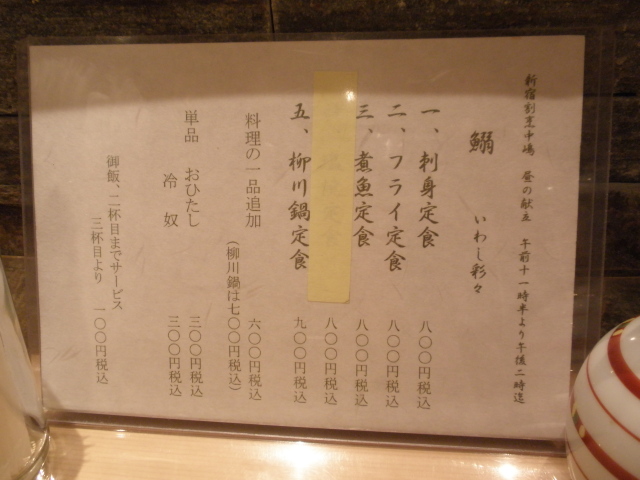 新宿割烹中嶋 昼の献立 午前十一時半より午後二時迄
鰯 いわし彩々
一、刺身定食 八〇〇円税込
二、フライ定食 八〇〇円税込
三、煮魚定食 八〇〇円税込
八〇〇円税込
五、柳川鍋定食 九〇〇円税込
料理の一品追加 六〇〇円税込
(柳川鍋は七〇〇円税込)
単品 おひたし 三〇〇円税込
冷奴 三〇〇円税込
御飯、二杯目までサービス
三杯目より 一〇〇円税込